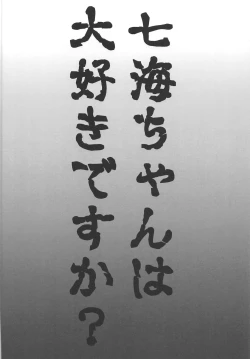 七海ちゃんは
大好きですか?